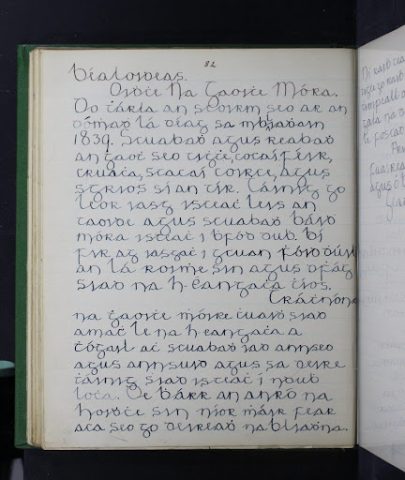 82
Béaloideas.
Oidhche na Gaoithe Móra.
Do thárla an stoirm seo ar an
dómhadh lá déag sa mbliadhain
1839. Scuabadh agus réabadh
an gaoth seo tighthe, cocaí féir,
cruacha, stacaí coirce, agus
scrios sí an tír. Tháinig go
leor iasg isteach leis an
taoide agus scuabadh báid
móra isteach i bfód dubh. Bhí
fir ag iasgach i gcuan
an lá roimhe sin agus d'fhág
siad na h-eangacha thíos.
Tráthnóna
na gaoithe móire chuaidh siad
amach le na h-eangacha a
thógáil ach scuabadh iad annseo
agus annsiúd agus sa deire
tháinig siad isteach i nDubh
Locha. De bharr an anró na
hoidhche sin níor mhair fear
aca seo go deireadh na bliadhna.